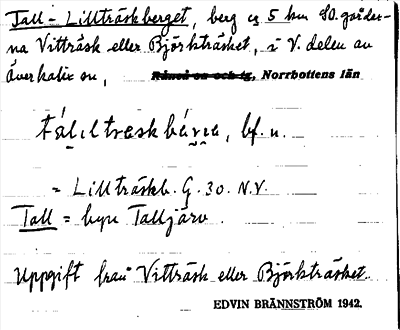 Tall - Lillträskberget, berg ca 5 km SO. gårdar-
na Vitträsk eller Björkträsket, i V. delen av
Överkalix sn, Råneå sn och tg, Norrbottens län
tálıltraskbárıa, bf. n.
= Lillträskb. G. 30. N.V.
Tall = byn Talljärv.
Uppgift från Vitträsk eller Björkträsket.
EDVIN BRÄNNSTRÖM 1942.